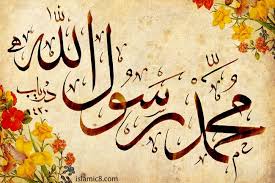 محمّد رسول الله
islamic8.com